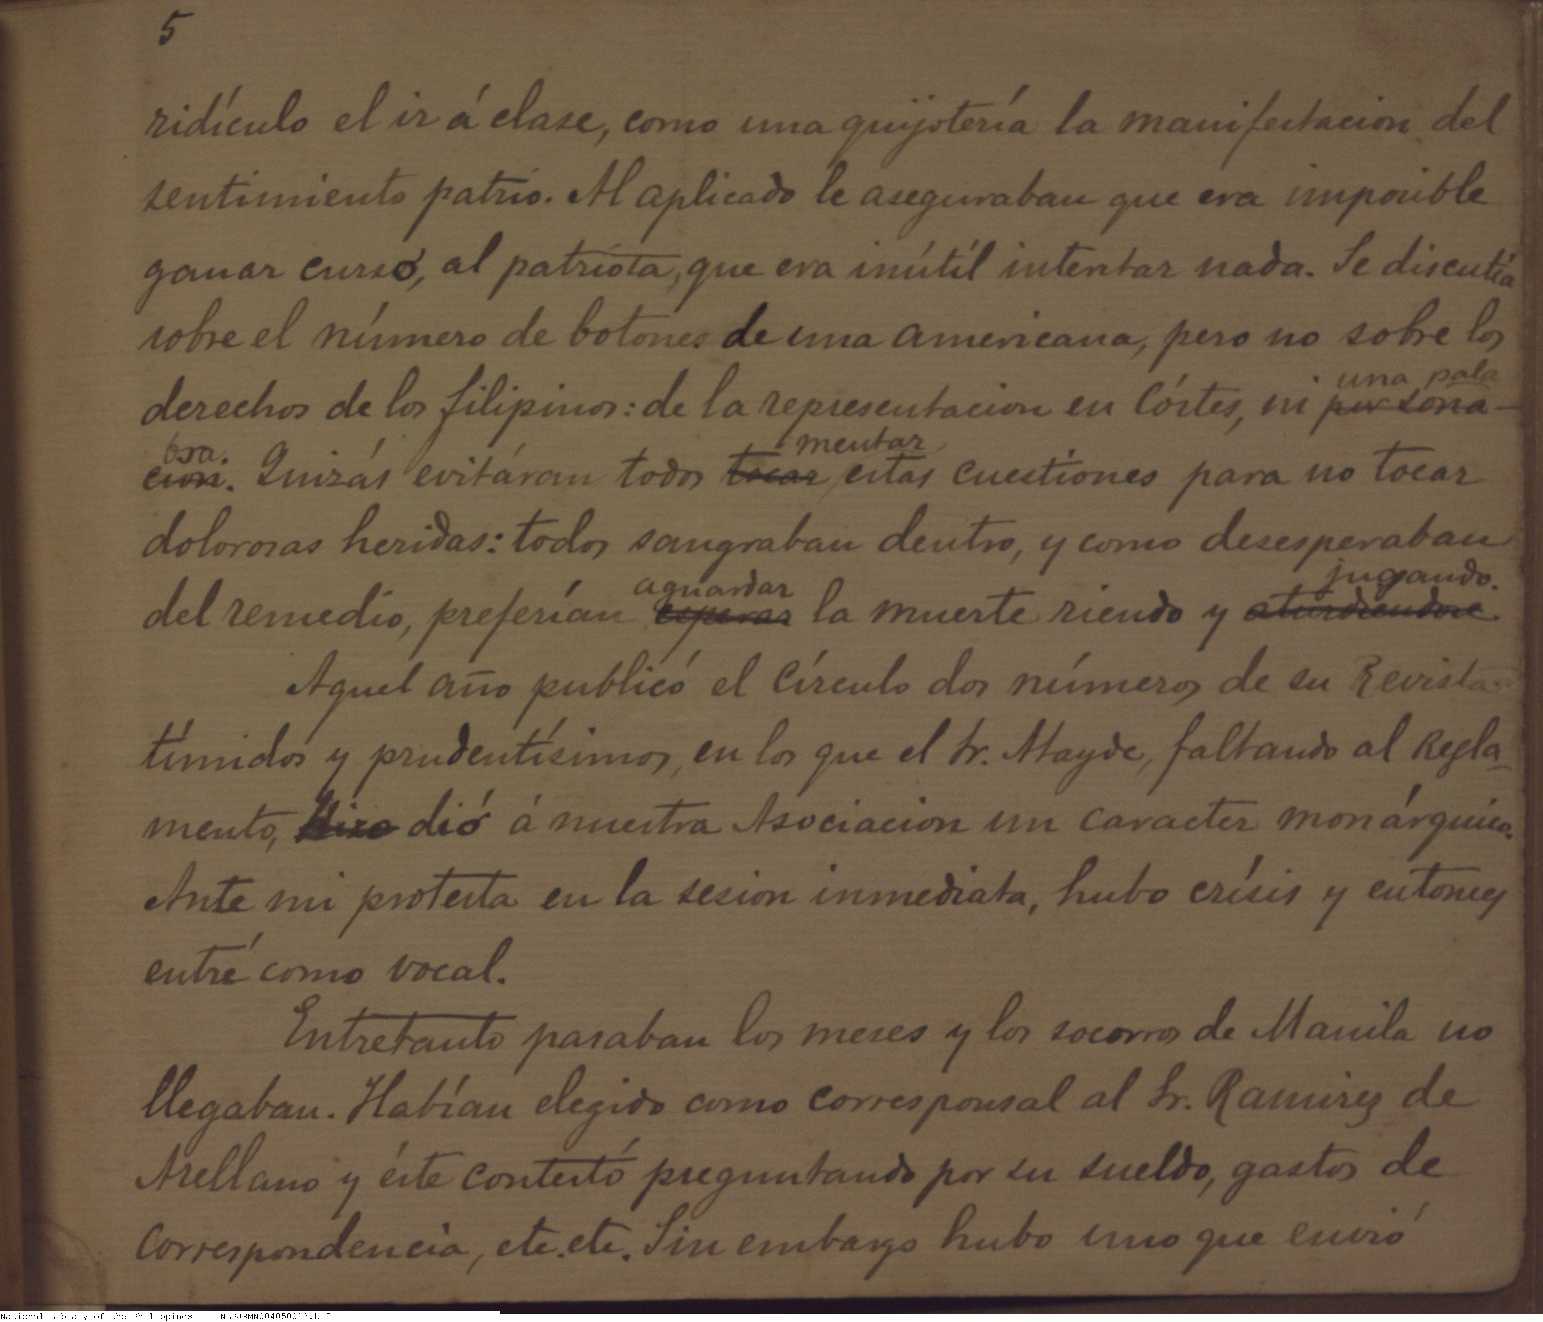 5
ridículo el ir á clase, como una quijotería la manifestacion del
sentimiento patrio. Al aplicado le aseguraban que era imposible
ganar curso, al patriota, que era inútil intentar nada. Se discutía
sobre el número de botones de una americana, pero no sobre los
una pala
derechos de los filipinos: de la representacion en Córtes, ni persona-
bra. mentar
cion. Quizás evitáran todos tocar estas cuestiones para no tocar
dolorosas heridas: todos sangraban dentro, y como desesperaban
aguardar jugando.
del remedio, preferían esperar la muerte riendo y aturdiendose.
Aquel año publicó el Círculo dos números de su Revista
tímidos y prudentísimos, en los que el Sr. Atayde, faltando al Regla-
mento, hizo dió á nuestra Asociacion un caracter monárquico.
Ante mi protesta en la sesion inmediata, hubo crísis y entonces
entré como vocal.
Entretanto pasaban los meses y los socorros de Manila no
llegaban. Habían elegido como corresponsal al Sr. Ramirez de
Arellano y éste contestó preguntando por su sueldo, gastos de
correspondencia, etc. etc. Sin embargo hubo uno que envió
National Library of the Philippines